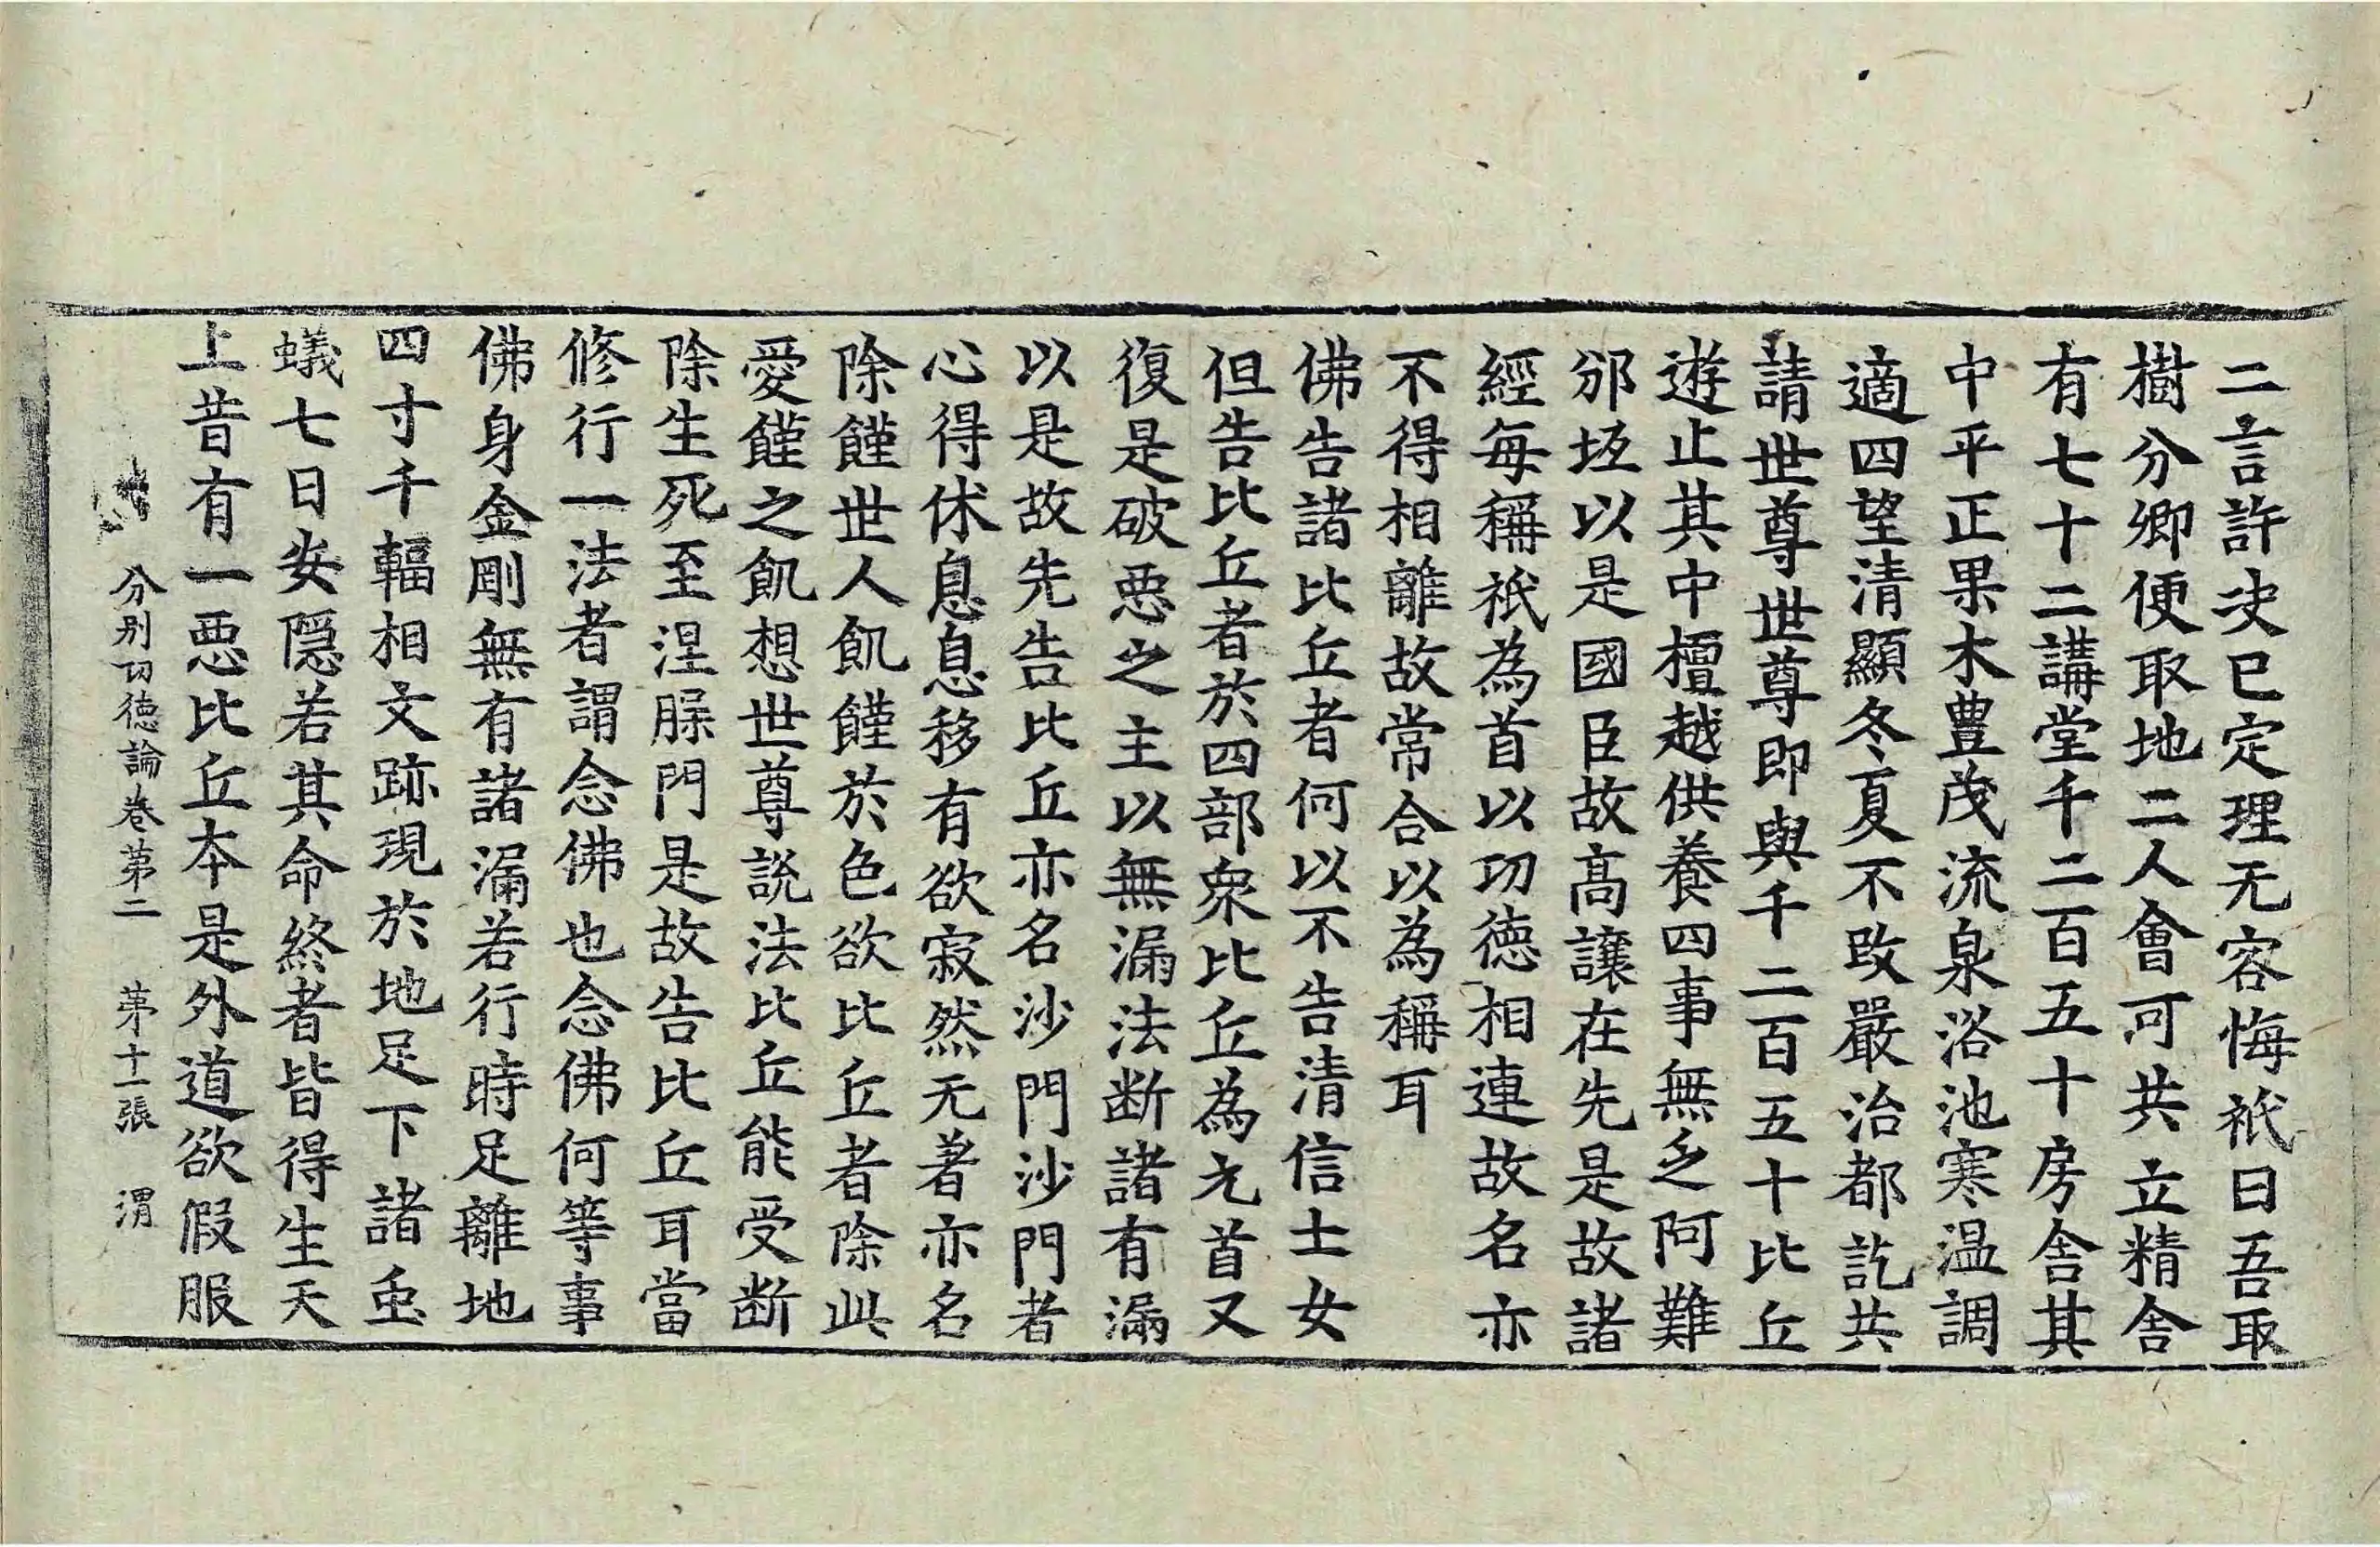 二言許决已定理无容悔祇曰吾取
樹分卿便取地二人會可共立精舍
有七十二講堂千二百五十房舍其
中平正果木豊茂流泉浴池寒温調
適四望清顯冬夏不改嚴治都訖共
請世尊世尊即與千二百五十比丘
遊止其中檀越供養四事無乏阿難
邠坻以是國臣故髙讓在先是故諸
經每稱祇為首以功徳相連故名亦
不得相離故常合以為稱耳
佛告諸比丘者何以不告清信士女
但告比丘者於四部衆比丘為元首又
復是破惡之主以無漏法断諸有漏
以是故先告比丘亦名沙門沙門者
心得休息息移有欲寂然无著亦名
除饉世人飢饉於色欲比丘者除此
愛饉之飢想世尊說法比丘能受断
除生死至涅䏶門是故告比丘耳當
修行一法者謂念佛也念佛何等事
佛身金剛無有諸漏若行時足離地
四寸千輻相文跡現於地足下諸䖝
蟻七日安隱若其命終者皆得生天
上昔有一惡比丘本是外道欲假服
分别功徳論卷第二　第十一張　渭